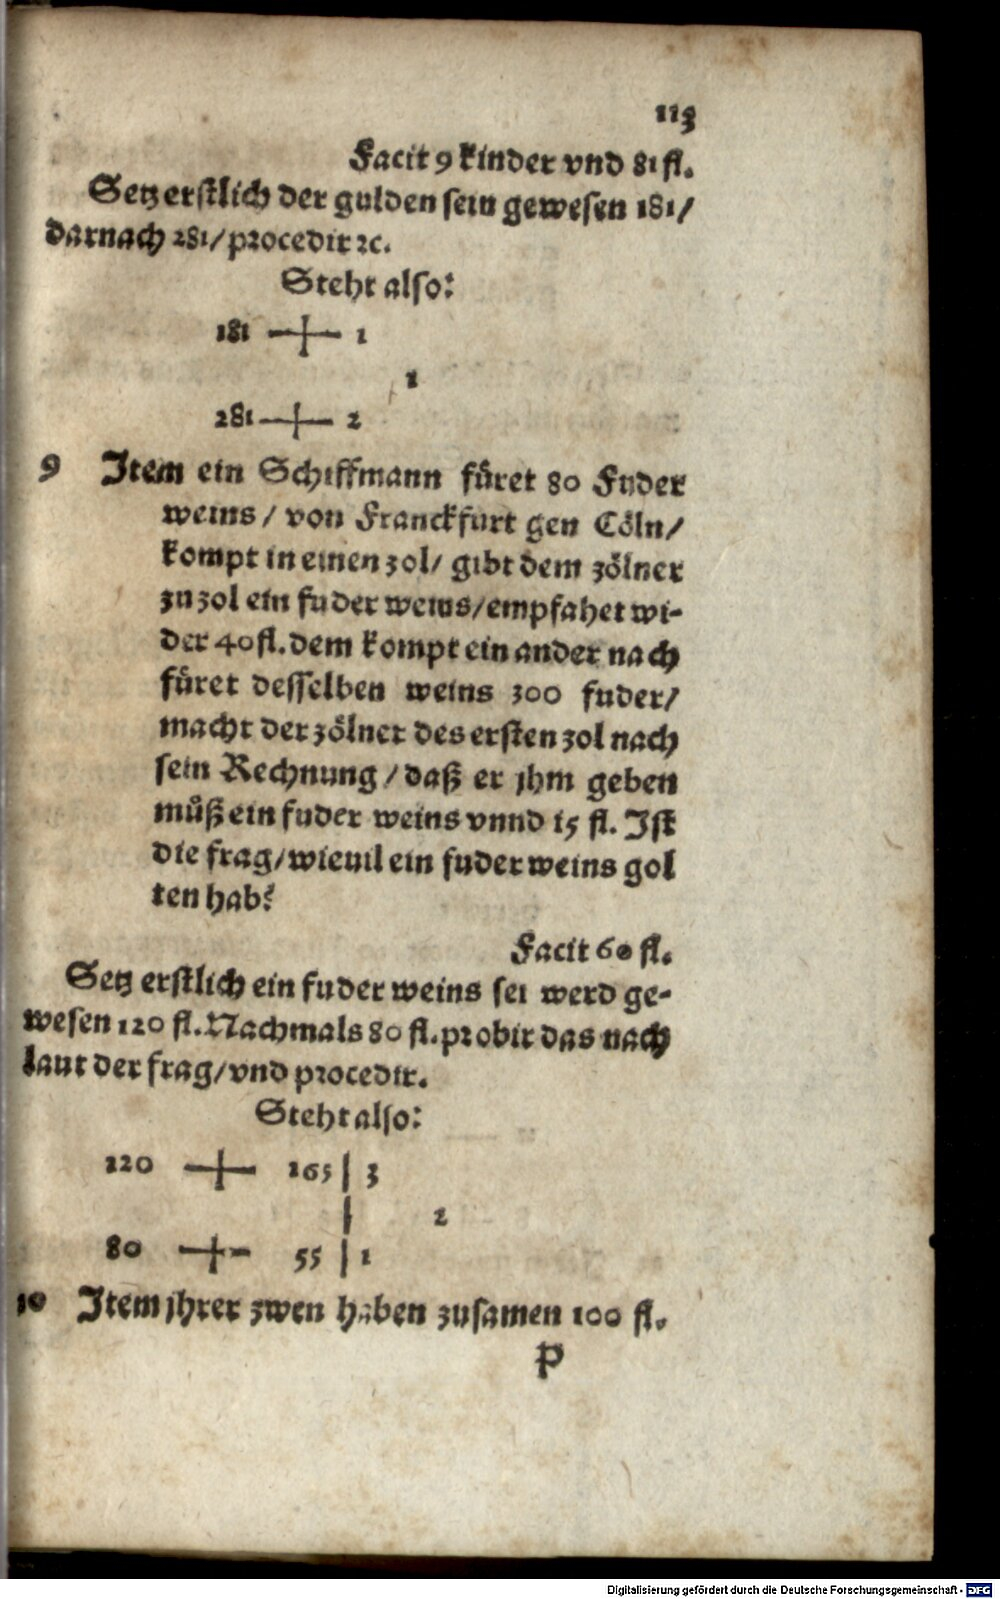 113
Facit 9 kinder vnd 81 fl.
Setz erstlich der gulden sein gewesen 181/
darnach 281/ procedir ꝛc.
Steht also:
181 —+— 1
1
281 —+— 2
9 Item ein Schiffmann füret 80 Fuder
weins / von Franckfurt gen Cöln/
kompt in einen zol/ gibt dem zölner
zu zol ein fuder weins/empfahet wi-
der 40 fl. dem kompt ein ander nach
füret desselben weins 300 fuder/
macht der zölner des ersten zol nach
sein Rechnung / daß er jhm geben
můß ein fuder weins vnnd 15 fl. Ist
die frag/wieuil ein fuder weins gol
ten hab?
Facit 60 fl.
Setz erstlich ein fuder weins sei werd ge-
wesen 120 fl. Nachmals 80 fl. probir das nach
laut der frag/vnd procedir.
Steht also:
120 —+— 165 | 3
| 2
80 —+— 55 | 1
10 Item jhrer zwen haben zusamen 100 fl.
P
Digitalisierung gefördert durch die Deutsche Forschungsgemeinschaft - DFG